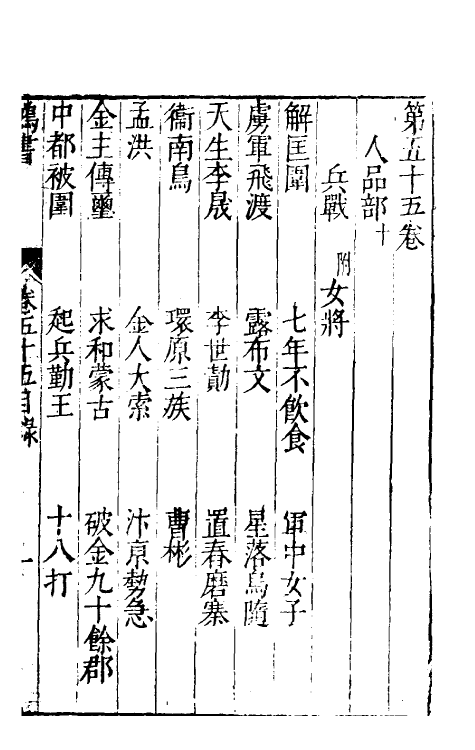 第五十五卷
人品部十
兵戰 附女將
解匡圍 七年不飲食 軍中女子
虜軍飛渡 露布文 星落鳥隨
天生李晟 李世勣 置舂磨寨
衞南鳥 環原三族 曹彬
孟洪 金人大索 汴京勢急
金主傳璽 求和蒙古 破金九十餘郡
中都被圍 起兵勤王 十八打
鴻書 卷五十五目錄 一